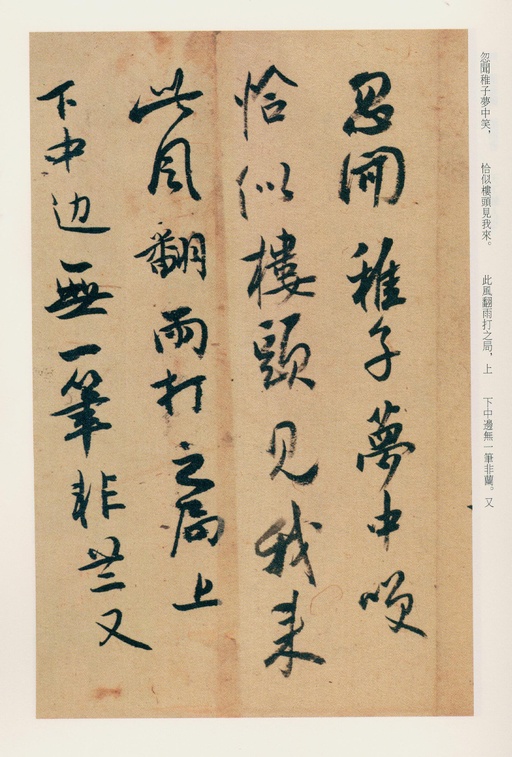 忽聞稚子夢中笑，　恰似樓頭見我來。　此風翻雨打之局，上　下中邊無一筆非蘭。又
忽闻稚子夢中咲
恰似樓頭見我来
此風翻雨打之局上
下中边無一筆非兰又